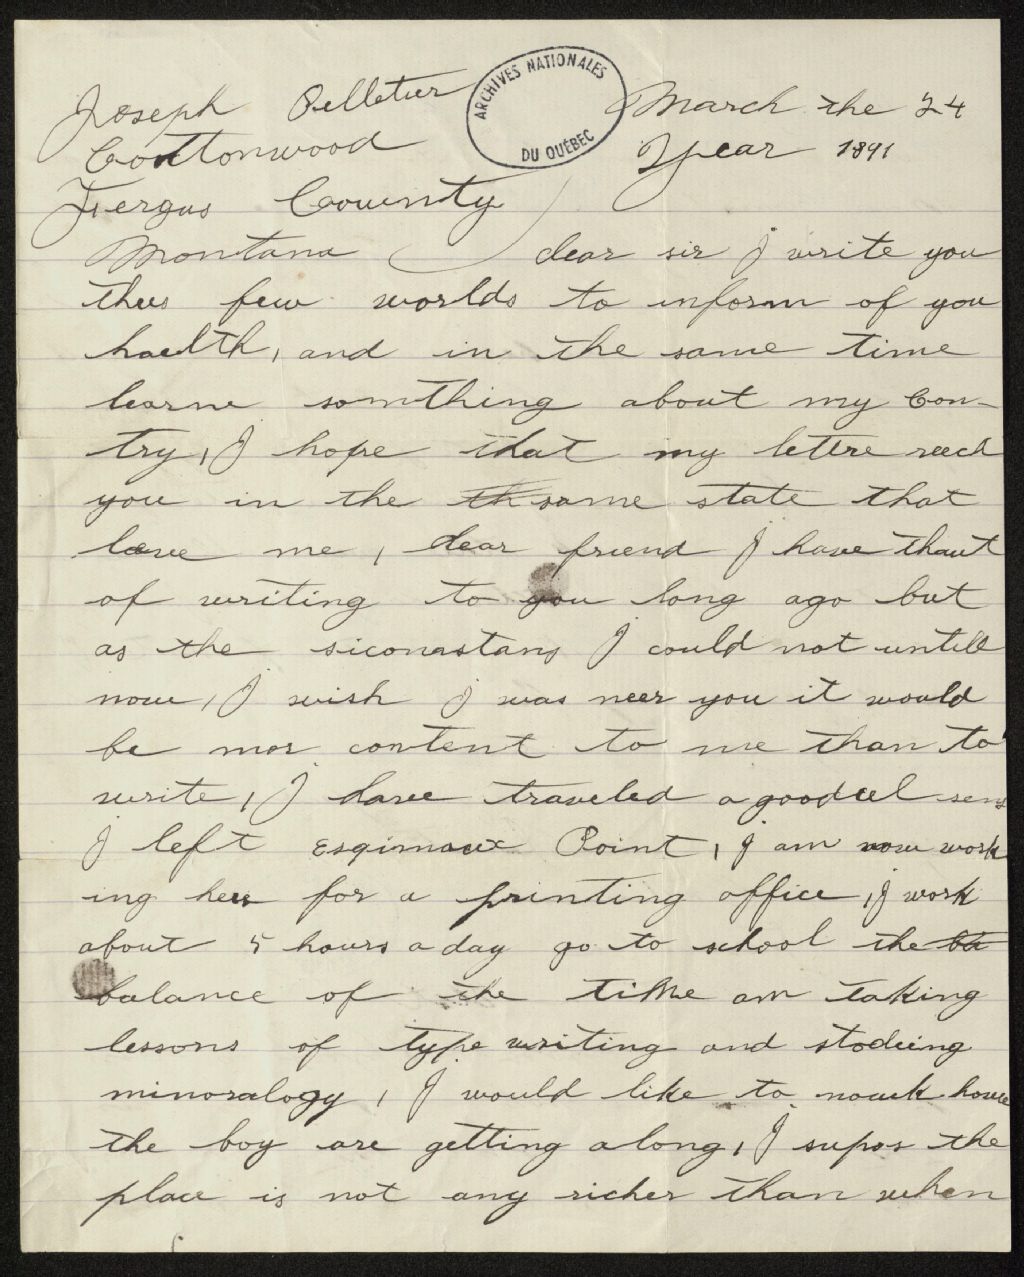 Joseph Pelletier
ARCHIVES NATIONALES
DU QUÉBEC
March the 24
Cottonwood
Year 1891
Fergus County
Montana dear sir I write you
thes few worlds to inform of you
haelth, and in the same time
learne somthing about my Con-
try, I hope that my lettre reech
you in the th same state that
leave me, dear friend I have thaut
of writing to you long ago but
as the siconastans I could not untill
now, I wish I was neer you it would
be mor content to me than to
write, I have traveled a goodeel sens
I left Esqimaux Point, I am now work
ing heer for a printing office, I work
about 5 hours a day go to school the ba
balance of the time am taking
lessons of type writing and studeing
minoralogy, I would like to nowk howe
the boy are getting along, I supos the
place is not any richer than when